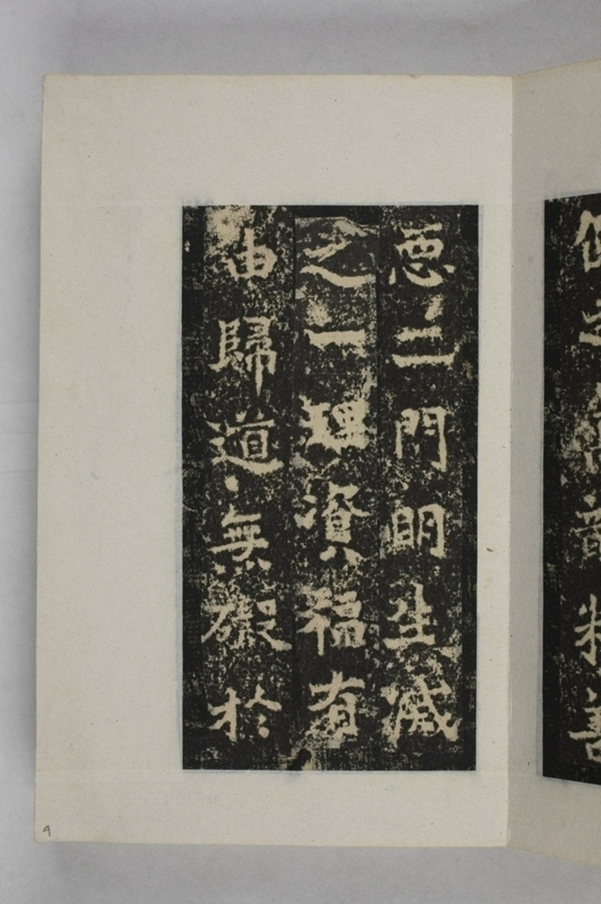 惡二門明生滅
之一理資福有
由歸道無礙於
9